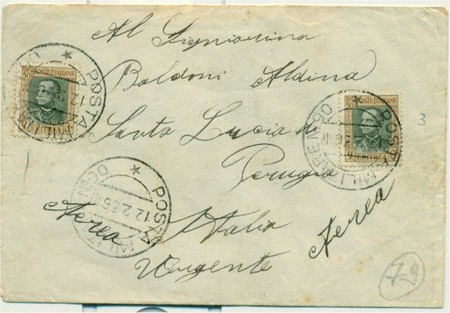 Al Signorina
Baldoni Aldina
Santa Lucia di
Perugia
Italia
Urgente
Aerea
Aerea
POSTA
12.2.36
POSTE ITALIANE
POSTA MILITARE
3
79